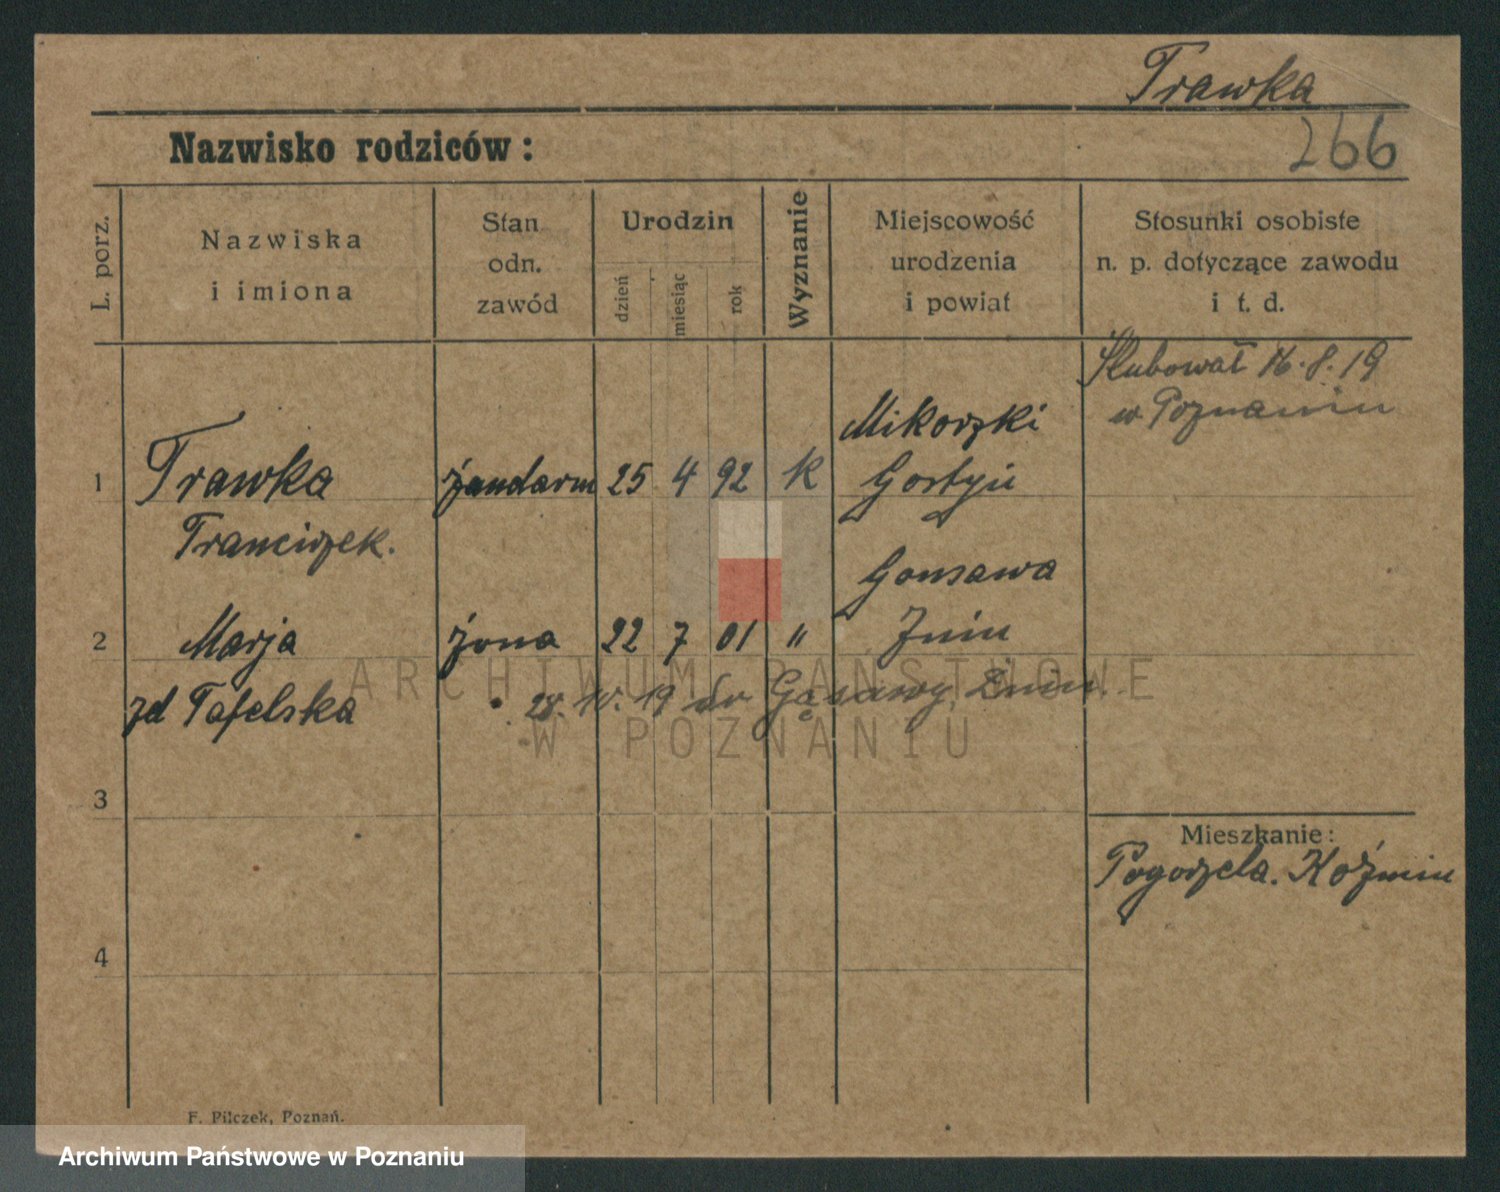 Trawka
266
Nazwisko rodziców :
L. porz.
Nazwiska
i imiona
Stan
odn.
zawód
Urodzin
dzień
miesiąc
rok
Wyznanie
Miejscowość
urodzenia
i powiat
Stosunki osobiste
n. p. dotyczące zawodu
i t. d.
Ślubował 16.8.19
w Poznaniu
1 Trawka żandarm 25 4 92 k Mikorzki
Gostyń
Franciszek.
2 Marja żona 22 7 01 " Gonsawa
Żnin
zd Tafelska
28. IV. 19 do Gąsawy, Żnin.
3
4
Mieszkanie :
Pogorzela. Koźmin
F. Pilczek, Poznań.
ARCHIWUM PAŃSTWOWE
W POZNANIU
Archiwum Państwowe w Poznaniu